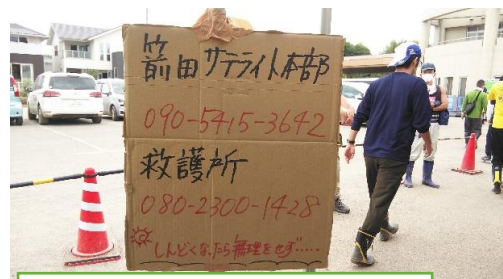 箭田サテライト本部
090-5415-3642
救護所
080-2300-1428
しんどくなったら無理をせず……